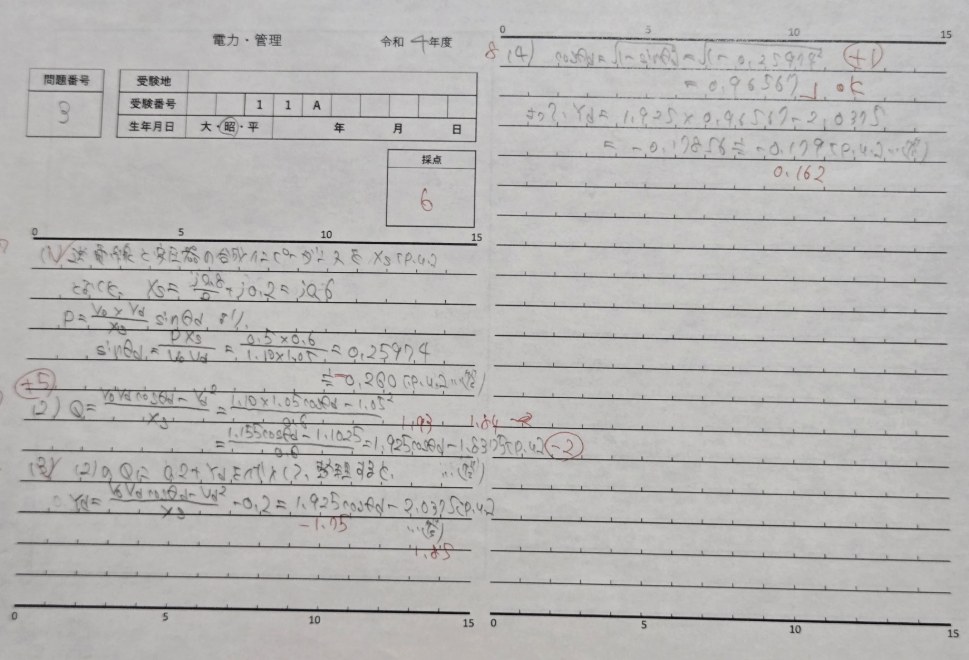 電力・管理 令和 4年度
問題番号
3
受験地
受験番号 1 1 A
生年月日 大・昭・平 年 月 日
採点
6
0 5 10 15
(1) 送電線と変圧器の合成 を X₃ [p.u.]
とおくと、 X₃ = j0.8/2 + j0.2 = j0.6
P = V₀×Vd/X₃ sinθd より、
sinθd = PX₃/V₀Vd = 0.5×0.6/1.10×1.05 = 0.25974
≒ 0.260 [p.u.] …(答)
+5
(2) Q = V₀Vd cosθd − Vd²/X₃ = 1.10×1.05cosθd − 1.05²/0.6
1.93 1.84
= 1.155cosθd − 1.1025/0.6 = 1.925cosθd − 1.8375 [p.u.] −2
…(答)
(3) (2)の Qに 0.2+Yd を代入して、整理すると、
Yd = V₀Vd cosθd − Vd²/X₃ − 0.2 = 1.925cosθd − 2.0375 [p.u.]
−1.75 …(答)
1.85
0 5 10 15
0 5 10 15
8 (4) cosθd = √1 − sinθd² = √1 − 0.25974² +1
= 0.96567
よって、Yd = 1.925 × 0.96567 − 2.0375
= −0.17856 ≒ −0.179 [p.u.] …(答)
0.162
0 5 10 15